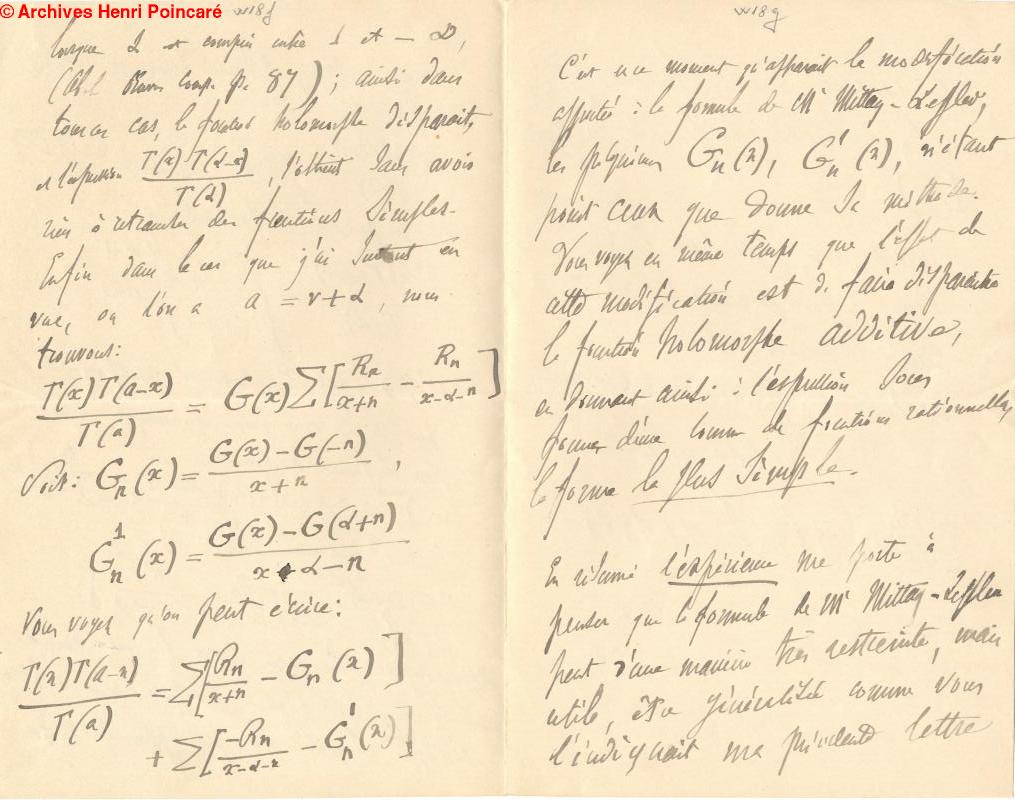 © Archives Henri Poincaré
w18f
lorsque α est compris entre 1 et − ∞,
(Abel Œuvres Comp. p. 87) ; ainsi dans
tous ces cas, la fonction holomorphe disparait,
et l'expression Γ(x) Γ(α-x) / Γ(α), s'obtient sans avoir
rien à retrancher des fractions simples.
Enfin dans le cas que j'ai surtout en
vue, où l'on a a = ν + α, nous
trouvons:
Γ(x) Γ(a-x) / Γ(a) = G(x) Σ [ Rn / x+n − Rn / x-α-n ]
Soit: Gn(x) = G(x) − G(-n) / x + n ,
G¹n(x) = G(x) − G(α+n) / x - α - n
Vous voyez qu'on peut écrire:
Γ(x) Γ(a-x) / Γ(a) = Σ [ Rn / x+n − Gn(x) ]
+ Σ [ -Rn / x-α-n − G¹n(x) ]
w18g
C'est en ce moment qu'apparait la modification
apportée à la formule de Mr Mittag-Leffler,
les polynômes Gn(x), G¹n(x), n'étant
point ceux que donne sa méthode.
Vous voyez en même temps que l'effet de
cette modification est de faire disparaitre
la fonction holomorphe additive,
en donnant ainsi à l'expression sous
forme d'une somme de fractions rationnelles,
la forme la plus simple.
En résumé l'expérience me porte à
penser que la formule de Mr Mittag-Leffler
peut d'une manière très restreinte, mais
utile, être généralisée comme vous
l'indiquait ma précédente lettre